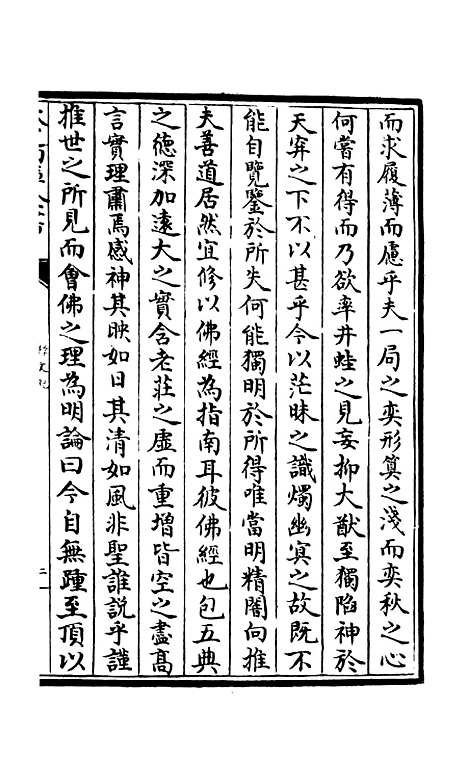 而求履薄而慮乎夫一局之奕形筭之淺而奕秋之心
何嘗有得而乃欲率井蛙之見妄抑大猷至獨陷神於
天穽之下不以甚乎今以茫昧之識燭幽冥之故既不
能自覽鑒於所失何能獨明於所得唯當明精闇向推
夫善道居然宜修以佛經為指南耳彼佛經也包五典
之德深加遠大之實含老莊之虛而重增皆空之盡高
言實理肅焉感神其映如日其清如風非聖誰說乎謹
推世之所見而會佛之理為明論曰今自無踵至頂以
釋文紀
二